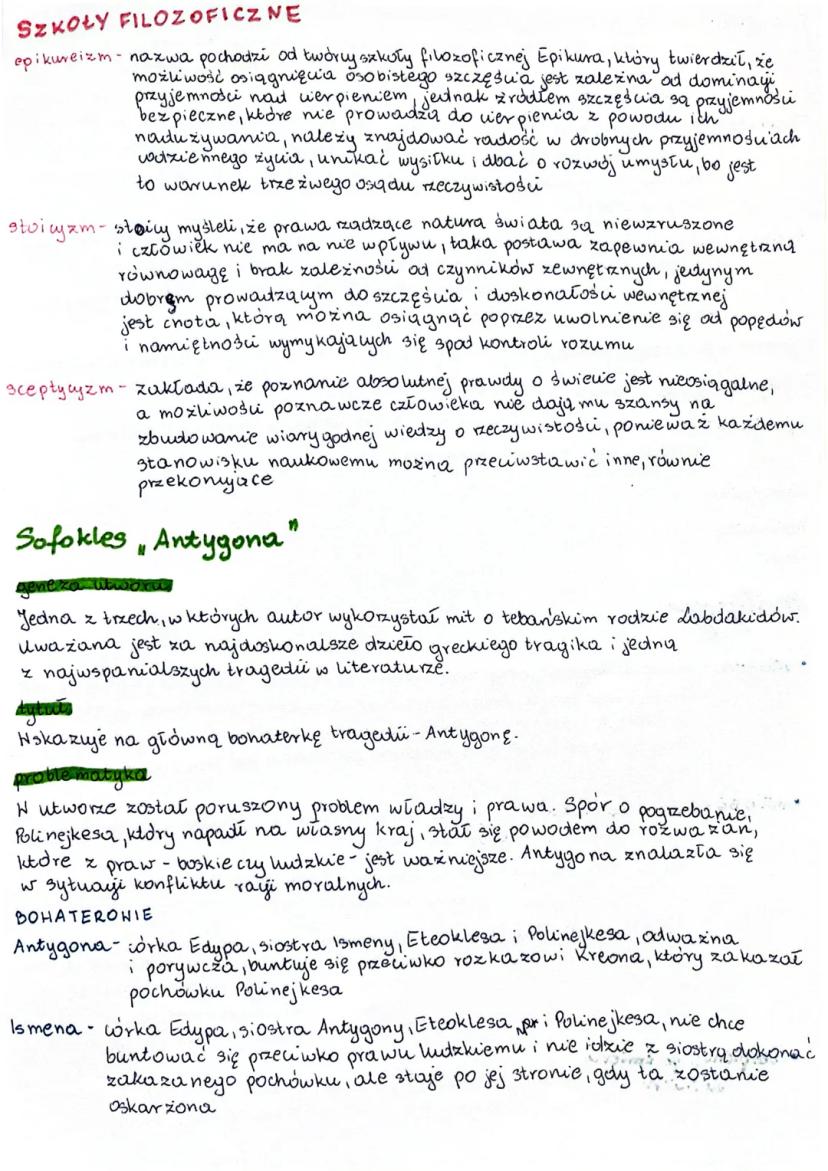 SZKOŁY FILOZOFICZNE
epikureizm - nazwa pochodzi od twórcy szkoły filozoficznej Epikura, który twierdził, że
możliwość osiągnięcia osobistego szczęścia jest zależna od dominacji
przyjemności nad cierpieniem, jednak źródłem szczęścia są przyjemności
bezpieczne, które nie prowadzą do cierpienia z powodu ich
nadużywania, należy znajdować radość w drobnych przyjemnościach
codziennego życia, unikać wysiłku i dbać o rozwój umysłu, bo jest
to warunek trzeźwego osądu rzeczywistości
stoicyzm - stoicy myśleli, że prawa rządzące naturą świata są niewzruszone
i człowiek nie ma na nie wpływu, taka postawa zapewnia wewnętrzną
równowagę i brak zależności od czynników zewnętrznych, jedynym
dobrem prowadzącym do szczęścia i doskonałości wewnętrznej
jest cnota, którą można osiągnąć poprzez uwolnienie się od popędów
i namiętności wymykających się spod kontroli rozumu
sceptycyzm - zakłada, że poznanie absolutnej prawdy o świecie jest nieosiągalne,
a możliwości poznawcze człowieka nie dają mu szansy na
zbudowanie wiarygodnej wiedzy o rzeczywistości, ponieważ każdemu
stanowisku naukowemu można przeciwstawić inne, równie
przekonujące
Sofokles „Antygona"
geneza utworu
Jedna z trzech, w których autor wykorzystał mit o tebańskim rodzie Labdakidów.
Uważana jest za najdoskonalsze dzieło greckiego tragika i jedną
z najwspanialszych tragedii w literaturze.
tytuł
Wskazuje na główną bohaterkę tragedii - Antygonę.
problematyka
W utworze został poruszony problem władzy i prawa. Spór o pogrzebanie,
Polinejkesa, który napadł na własny kraj, stał się powodem do rozważań,
które z praw - boskie czy ludzkie - jest ważniejsze. Antygona znalazła się
w sytuacji konfliktu racji moralnych.
BOHATEROWIE
Antygona - córka Edypa, siostra Ismeny, Eteoklesa i Polinejkesa, odważna
i porywcza, buntuje się przeciwko rozkazowi Kreona, który zakazał
pochówku Polinejkesa
Ismena - córka Edypa, siostra Antygony, Eteoklesa i Polinejkesa, nie chce
buntować się przeciwko prawu ludzkiemu i nie idzie z siostrą dokonać
zakazanego pochówku, ale staje po jej stronie, gdy ta zostanie
oskarżona